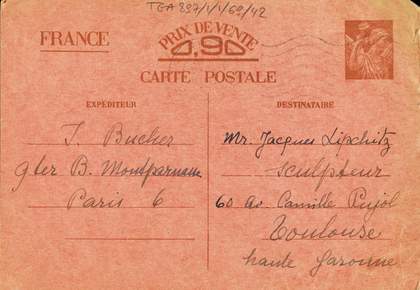 TGA 897/1/1/60/42
FRANCE
PRIX DE VENTE
0,90
CARTE POSTALE
EXPÉDITEUR
J. Bucher
9ter B. Montparnasse
Paris 6
DESTINATAIRE
Mr. Jacques Lipchitz
sculpteur
60 Av. Camille Pujol
Toulouse
haute Garonne